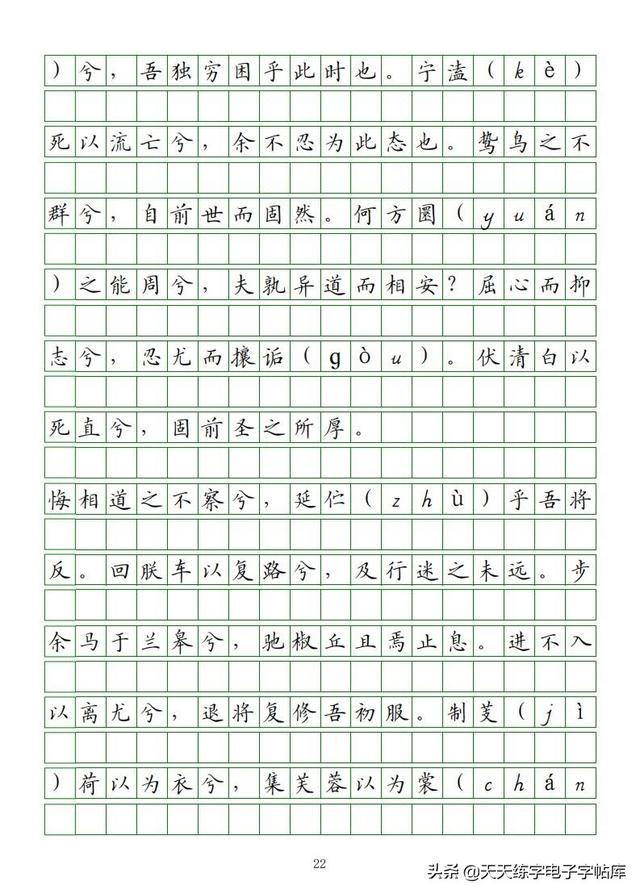 )兮，吾独穷困乎此时也。宁溘(kè)
死以流亡兮，余不忍为此态也。鸷鸟之不
群兮，自前世而固然。何方圜(yuán
)之能周兮，夫孰异道而相安？屈心而抑
志兮，忍尤而攘诟(gòu)。伏清白以
死直兮，固前圣之所厚。
悔相道之不察兮，延伫(zhù)乎吾将
反。回朕车以复路兮，及行迷之未远。步
余马于兰皋兮，驰椒丘且焉止息。进不入
以离尤兮，退将复修吾初服。制芰(jì
)荷以为衣兮，集芙蓉以为裳(chán
22
头条@天天练字电子字帖库